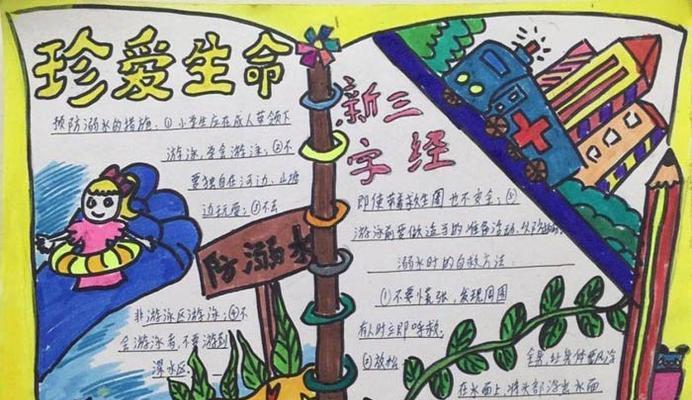 珍爱生命
预防溺水的措施:①小学生应在成人带领下
游泳,学会游泳;②不
要独自在河边、山塘
边玩耍;③不去
非游泳区游泳;④不
会游泳者,不要游到
深水区,
防溺水
新三
字经
即使带着救生圈也不安全;⑤
游泳前要做适当的准备活动,以防抽筋。
溺水时的自救方法:
①不要慌张,发现周围
有人时立即呼救;
②放松
全身,让身体飘浮
在水面上,将头部浮出水面